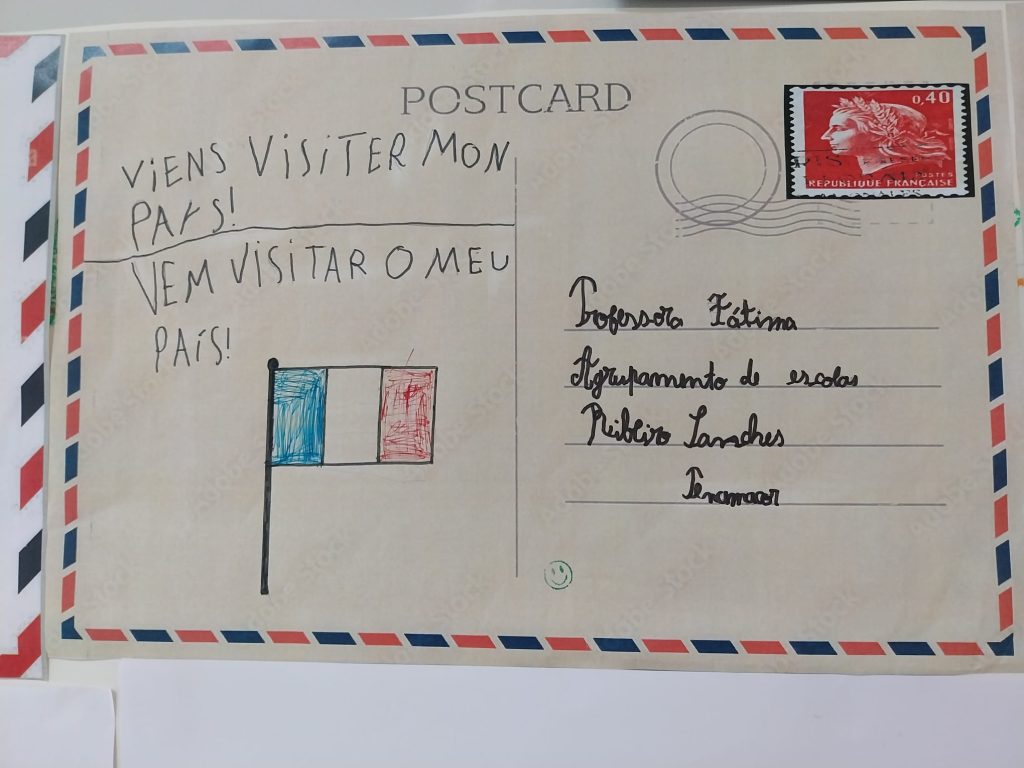 POSTCARD
0,40
POSTES
REPUBLIQUE FRANÇAISE
VIENS VISITER MON
PAYS!
VEM VISITAR O MEU
PAÍS!
Professora Fátima
Agrupamento de escolas
Ribeiro Sanches
Penamacor